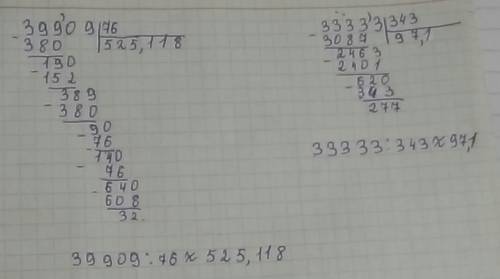 39909 76
380 525,118
190
152
389
380
90
76
140
76
640
608
32.
39909:76≈525,118
33333 343
3087 97,1
2463
2401
620
343
277
33333:343≈97,1